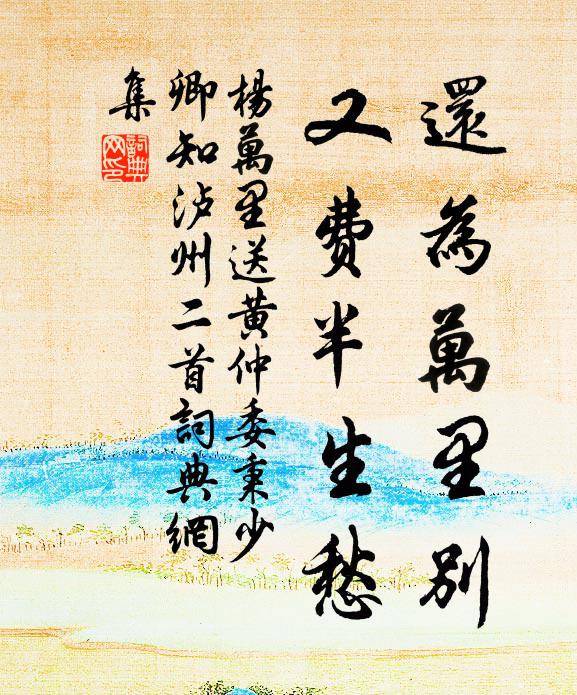 還為萬里別
又費半生愁
楊萬里送黄仲委秉少
卿知泸州二首詞典網
集
詞典
网印